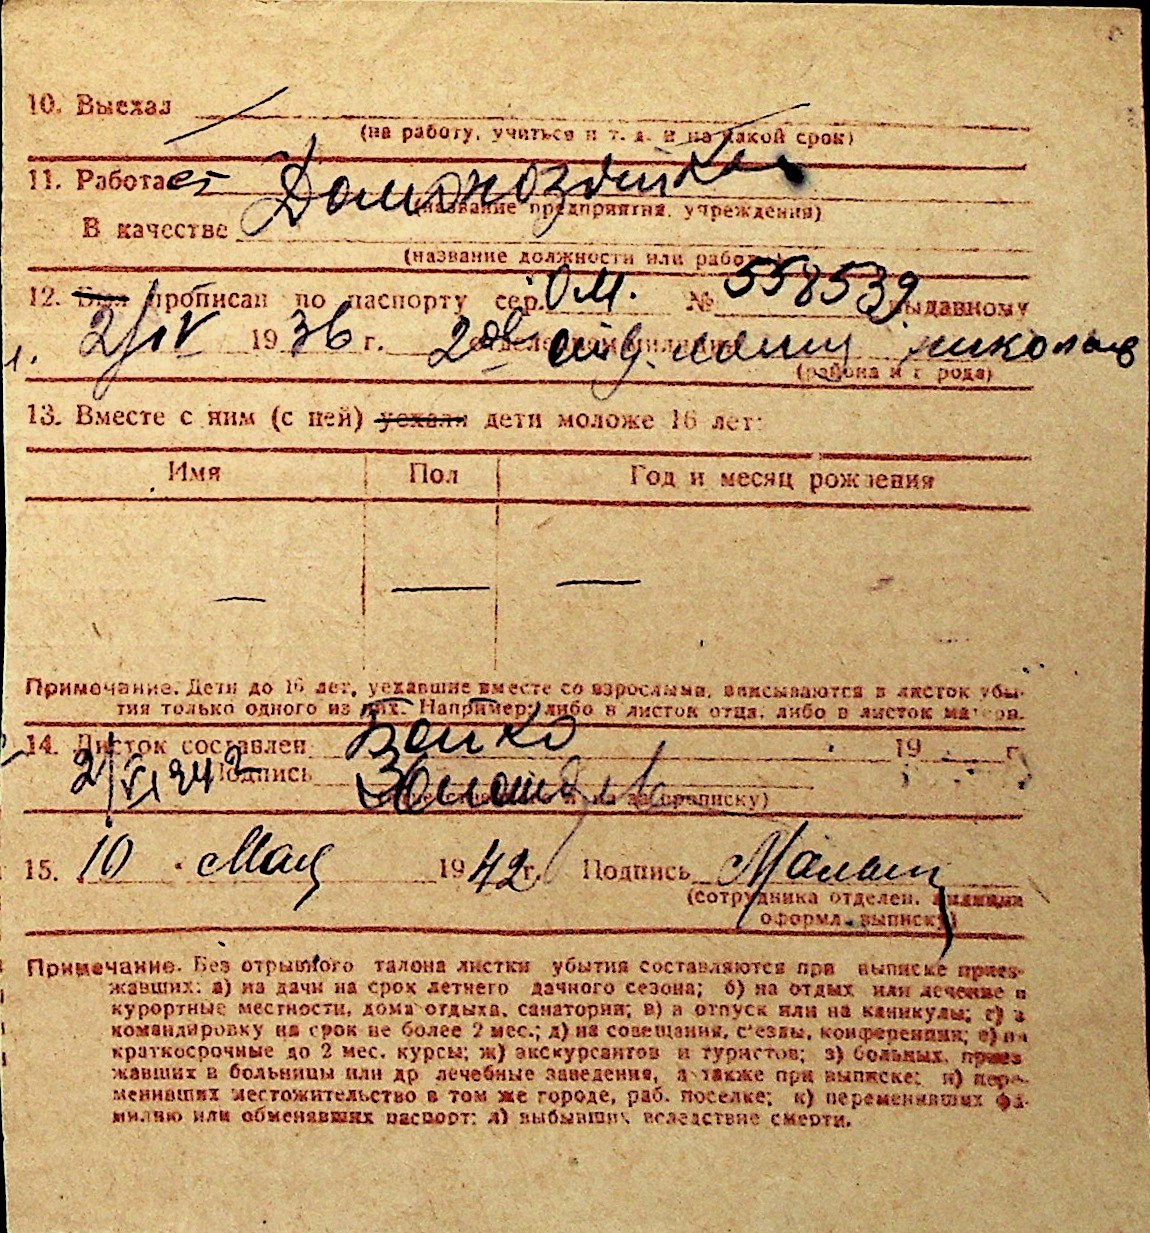 10. Выехал
(на работу, учиться и т. д. и на какой срок)
11. Работает Домохозяйка
(название предприятия, учреждения)
В качестве
(название должности или работы)
12. Был прописан по паспорту сер. ОМ. № 558539 выданному
2/IV 1936 г. 2ое отд. милиц николаев
(района и города)
13. Вместе с ним (с ней) уехали дети моложе 16 лет:
Имя Пол Год и месяц рождения
— — —
Примечание. Дети до 16 лет, уехавшие вместе со взрослыми, вписываются в листок убы-
тия только одного из них. Например: либо в листок отца, либо в листок матери.
14. Листок составлен Бойко 19 г.
2/VI 942 Подпись
15. 10 " Мая 1942 г. Подпись
(сотрудника отделен. милиции
оформл. выписку)
Примечание. Без отрывного талона листки убытия составляются при выписке приез-
жавших: а) на дачи на срок летнего дачного сезона; б) на отдых или лечение в
курортные местности, дома отдыха, санатории; в) в отпуск или на каникулы; г) в
командировку на срок не более 2 мес.; д) на совещания, с'езды, конференции; е) на
краткосрочные до 2 мес. курсы; ж) экскурсантов и туристов; з) больных, приез
жавших в больницы или др лечебные заведения, а также при выписке: и) пере-
менивших местожительство в том же городе, раб. поселке; к) переменивших фа-
милию или обменявших паспорт; л) выбывших вследствие смерти.